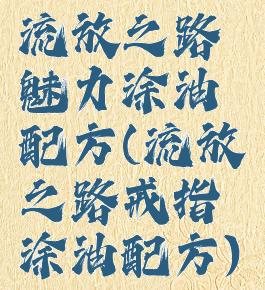 流放之路
魅力涂油
配方(流放
之路戒指
涂油配方)